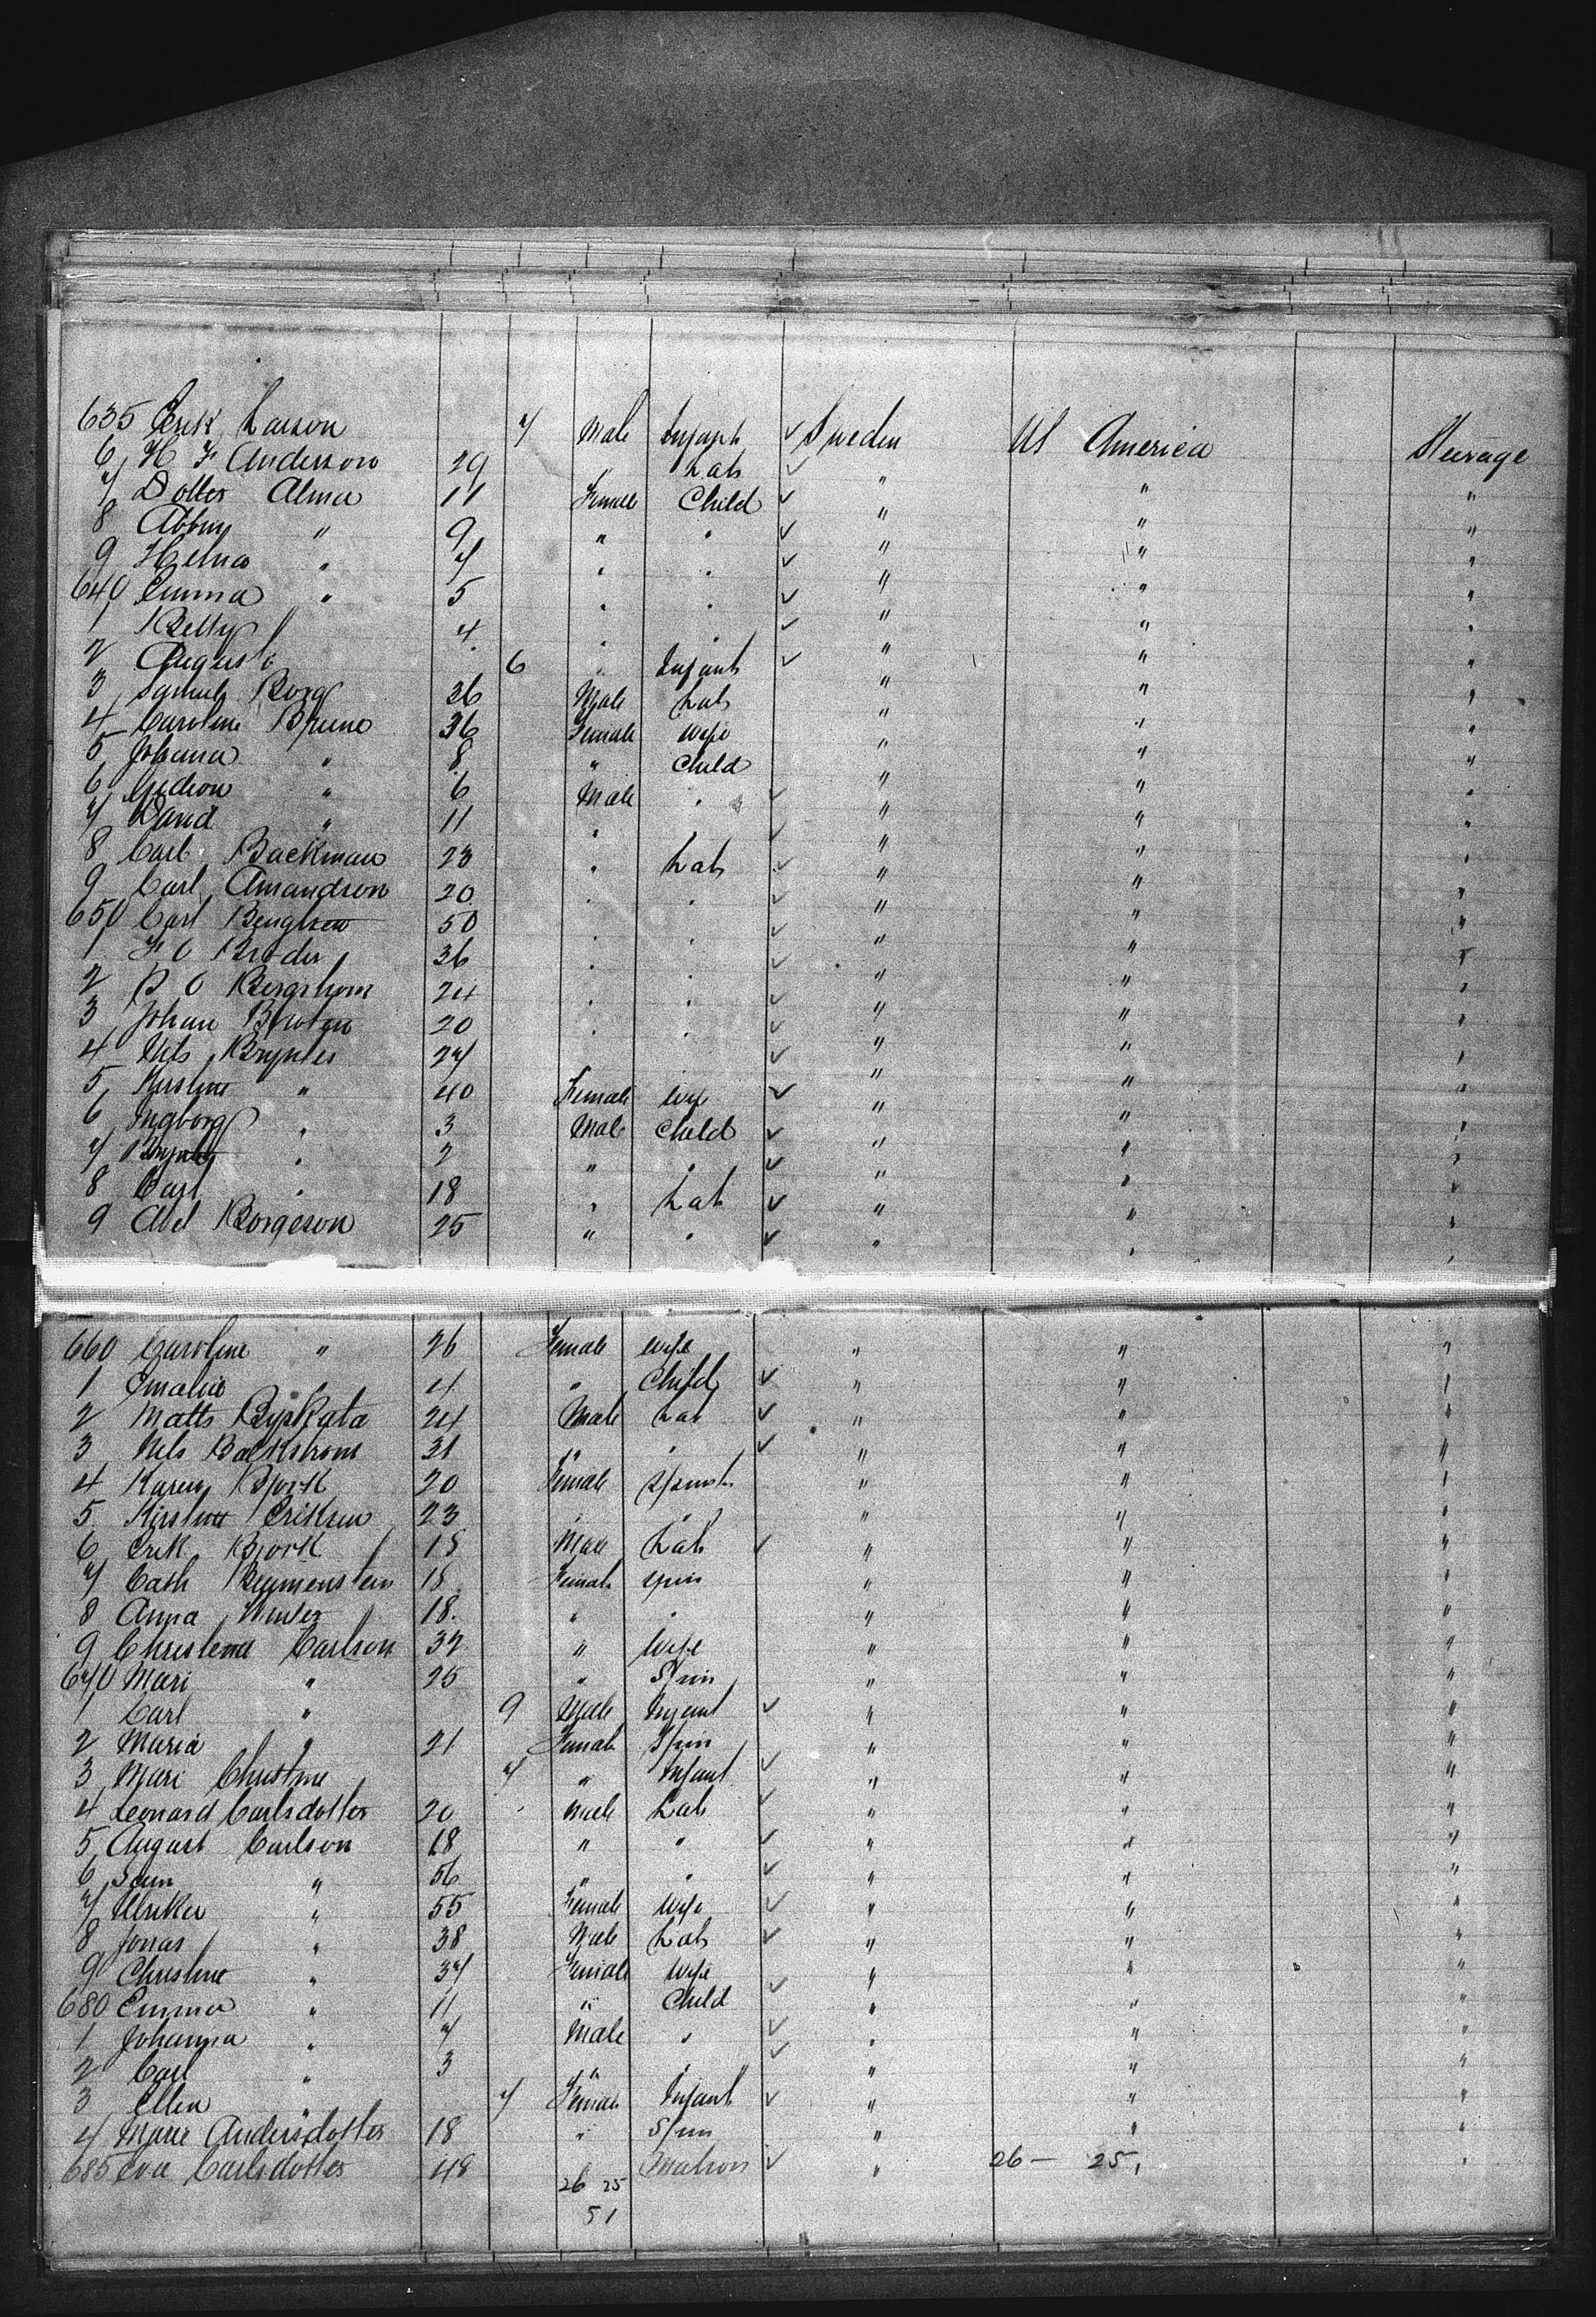 635 Erik Larson 7 Male Infant ✓ Sweden US America Steerage
6 H F Anderson 29 Lab ✓ " " "
7 Dotter Alma 11 Female Child ✓ " " "
8 Abbny " 9 " " ✓ " " "
9 Helna " 7 " " ✓ " " "
640 Emma " 5 " " ✓ " " "
1 Betty 4 " " ✓ " " "
2 August 6 " Infant ✓ " " "
3 Samuel Borg 36 Male Lab " " "
4 Caroline Bruno 36 Female Wife " " "
5 Johana " 8 " Child " " "
6 Gideon " 6 Male " ✓ " " "
7 David " 11 " " ✓ " " "
8 Carl Backman 23 " Lab ✓ " " "
9 Carl Amandson 20 " " ✓ " " "
650 Carl Bengtson 50 " " ✓ " " "
1 F O Broder 36 " " ✓ " " "
2 P O Bergstrom 24 " " ✓ " " "
3 Johan 20 " " ✓ " " "
4 Nils Bryntes 27 ✓ " " "
5 Kirstine " 40 Female Wife ✓ " " "
6 Ingborg " 3 Male Child ✓ " " "
7 " 2 " " ✓ " " "
8 Carl " 18 " Lab ✓ " " "
9 Abel Borgeson 25 " " ✓ " " "
660 Caroline " 26 Female Wife " " "
1 Amalia " 4 " Child ✓ " " "
2 Matts Byskata 24 Male Lab ✓ " " "
3 Nels Backstrom 31 " " ✓ " " "
4 Karen Bjork 20 Female Spinst " " "
5 Kirstine Eriksen 23 " " " " "
6 Erik Bjork 18 Male Lab ✓ " " "
7 Cath 18 Female Spin " " "
8 Anna Winter 18. " " " " "
9 Christena Carlson 32 " Wife " " "
670 Mari " 25 " Spin " " "
1 Carl " 9 Male Infant ✓ " " "
2 Maria " 21 Female Spin " " "
3 Mari Christine 7 " Infant ✓ " " "
4 Leonard Carlsdotter 20 Male Lab ✓ " " "
5 August Carlson 18 " " ✓ " " "
6 " 56 " " ✓ " " "
7 Ulrika " 55 Female Wife ✓ " " "
8 Jonas " 38 Male Lab ✓ " " "
9 Christine " 37 Female Wife " " "
680 Emma " 11 " Child ✓ " " "
1 Johanna " 7 Male " ✓ " " "
2 Carl " 3 " " ✓ " " "
3 Ellen " 7 Female Infant ✓ " " "
4 Marie Andersdotter 18 " Spin " " "
685 Eva Carlsdotter 48 Matron ✓ " 26 — 25, "
26 25
51